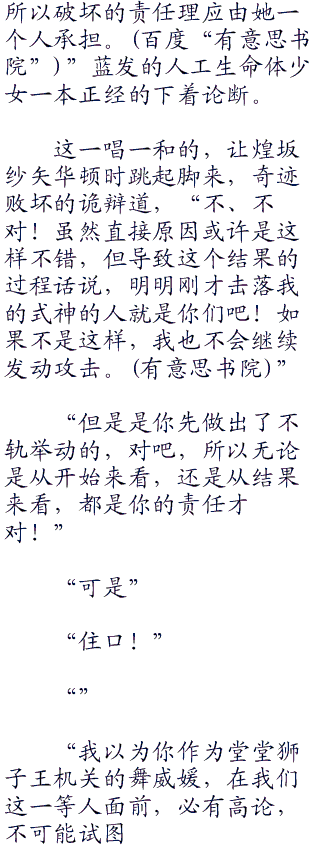 所以破坏的责任理应由她一
个人承担。(百度“有意思书
院”)”蓝发的人工生命体少
女一本正经的下着论断。
这一唱一和的，让煌坂
纱矢华顿时跳起脚来，奇迹
败坏的诡辩道，“不、不
对！虽然直接原因或许是这
样不错，但导致这个结果的
过程话说，明明刚才击落我
的式神的人就是你们吧！如
果不是这样，我也不会继续
发动攻击。(有意思书院)”
“但是是你先做出了不
轨举动的，对吧，所以无论
是从开始来看，还是从结果
来看，都是你的责任才
对！”
“可是”
“住口！”
“”
“我以为你作为堂堂狮
子王机关的舞威媛，在我们
这一等人面前，必有高论，
不可能试图